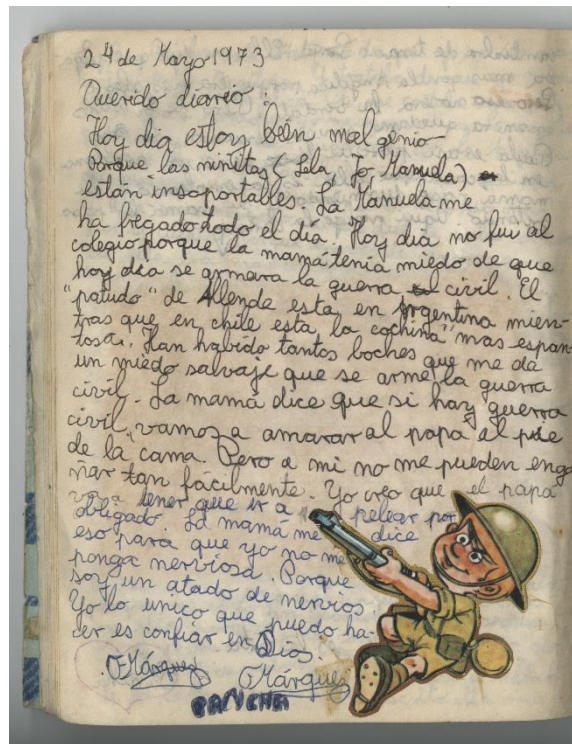 24 de Mayo 1973
Querido diario:
Hoy dia estoy bien mal genio
Porque las niñitas (Lela, Jo, Manuela)
están insoportables. La Manuela me
ha fregado todo el día. Hoy dia no fui al
colegio porque la mamá tenía miedo de que
hoy dia se armara la guerra civil. El
"patudo" de Allende esta en Argentina mien-
tras que en chile esta la "cochina" mas espan-
tosa. Han habido tantos boches que me da
un miedo salvaje que se arme la guerra
civil. La mamá dice que si hay guerra
civil, vamos a amarar al papá al pie
de la cama. Pero a mi no me pueden enga
ñar tan fácilmente. Yo creo que el papa
va a tener que ir a pelear por
obligado. La mamá me dice
eso para que yo no me
ponga nerviosa. Porque
soy un atado de nervios.
Yo lo unico que puedo ha-
cer es confiar en Dios.
FMárquez FMárquez
PANCHA